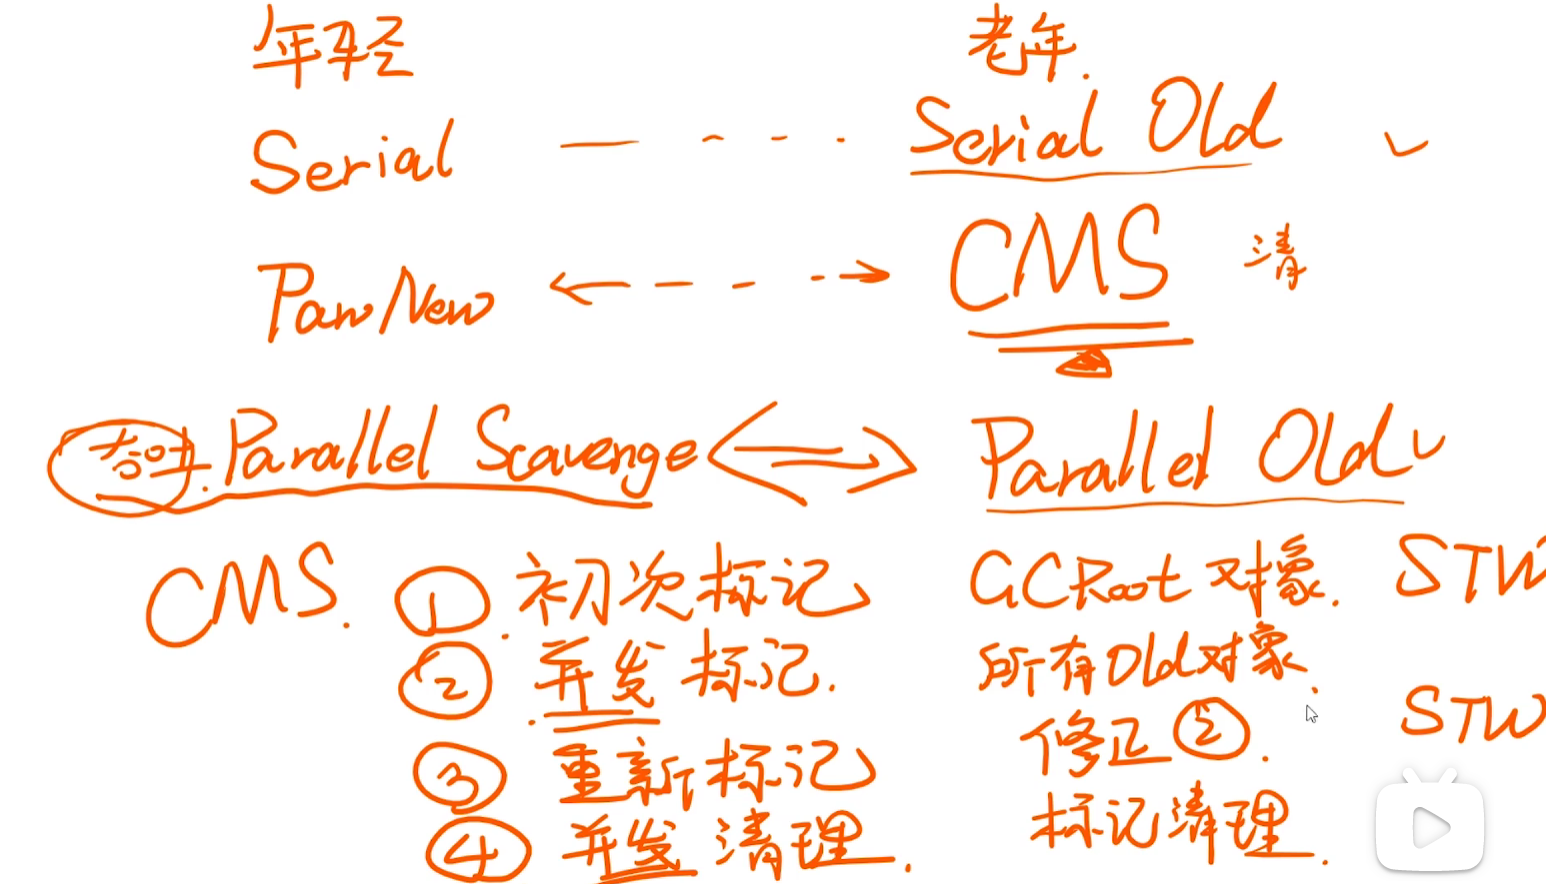 年轻 老年.
Serial Serial Old
ParNew CMS 清
Parallel Scavenge Parallel Old
CMS. ① 初次标记 GCRoot 对象. STW
② 并发标记. 所有Old对象. STW
③ 重新标记 修正②.
④ 并发清理. 标记清理.